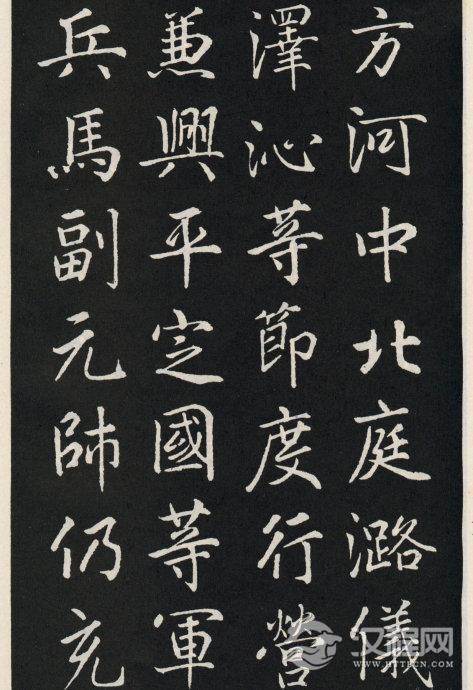 方河中北庭潞儀
澤沁等節度行營
兼興平定國等軍
兵馬副元帥仍充
汉程网
WWW.HTTPCN.COM